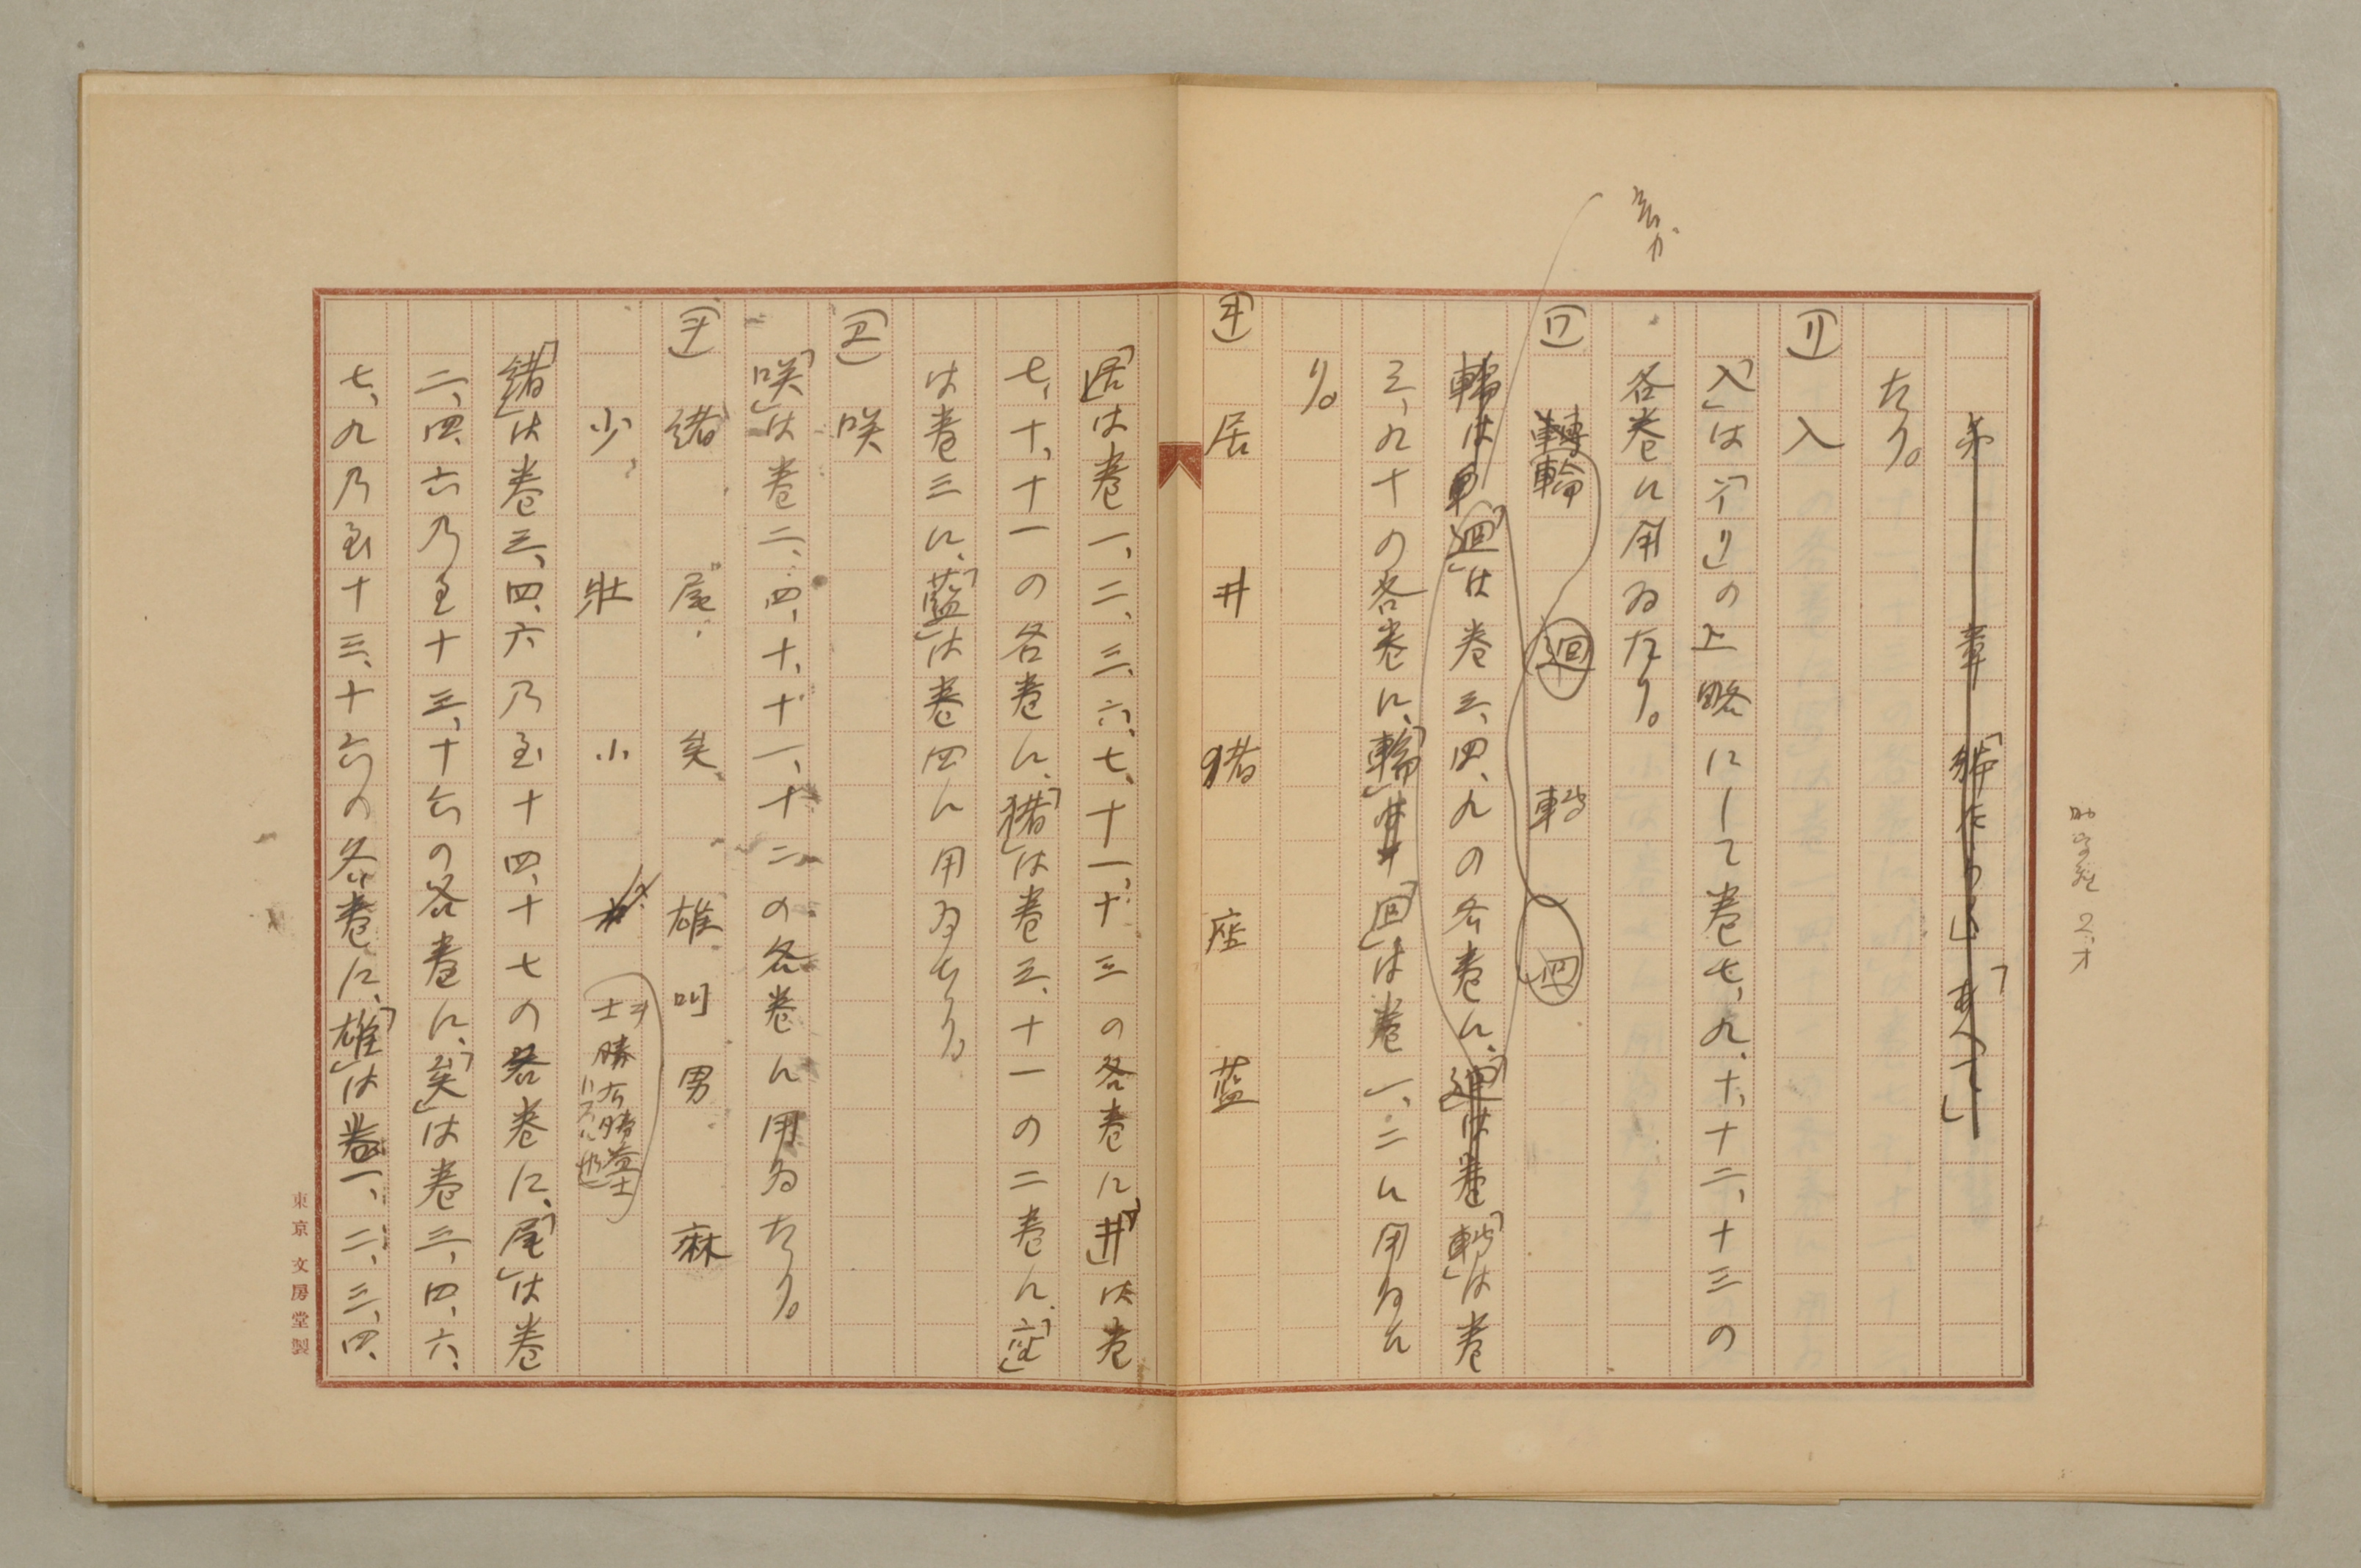 たり。
(リ)
入
「入」は「イリ」の上略にして巻七、九、十、十二、十三の
各巻に用ゐたり。
(ワ)
轉輪 廻 轉 回
輪は 「廻」は巻三、四、九の各巻に、廻は巻「轉」は巻
三、九十の各巻に、「輪」「回」は巻一、二に用ゐた
り。
(ヰ)
居 井 猪 座 藍
「居」は巻一、二、三、六、七、十一、十三の各巻に「井」は巻
七、十、十一の各巻に、「猪」は巻三、十一の二巻に、「座」
は巻三に、「藍」は巻四に用ゐたり。
(ヱ)
咲
「咲」は巻二、四、十、十一、十二の各巻に用ゐたり。
(ヲ)
緒 尾 矣 雄 叫 男 麻
少 壯 小 士
「緒」は巻三、四、六乃至十四、十七の各巻に、「尾」は巻
二、四、六乃至十三、十六の各巻に、「矣」は巻三、四、六、
七、九乃至十三、十六の各巻に、「雄」は巻一、二、三、四、
東京 文房堂製